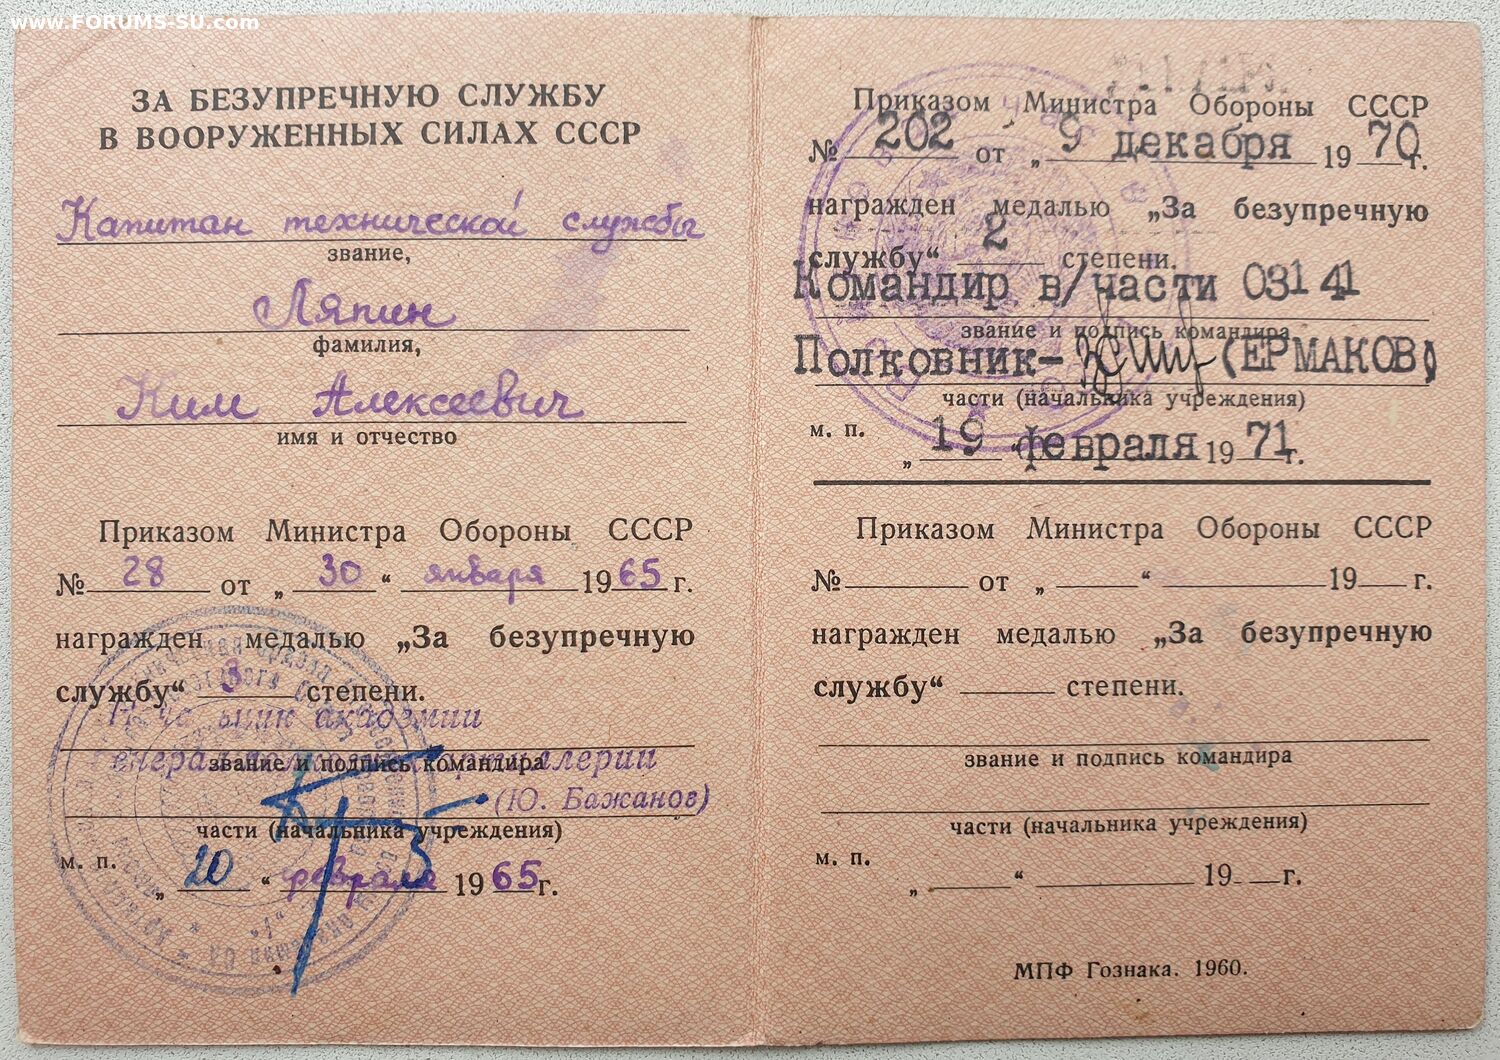 www.FORUMS-SU.com
ЗА БЕЗУПРЕЧНУЮ СЛУЖБУ
В ВООРУЖЕННЫХ СИЛАХ СССР
Капитан технической службы
звание,
Ляпин
фамилия,
Ким Алексеевич
имя и отчество
Приказом Министра Обороны СССР
№ 28 от „ 30 “ января 19 65 г.
награжден медалью „За безупречную
службу“ 3 степени.
Начальник академии
звание и подпись командира
артиллерии
(Ю. Бажанов)
части (начальника учреждения)
м. п.
„ 20 “ февраля 19 65 г.
Приказом Министра Обороны СССР
№ 202 от „ 9 декабря 19 70 г.
награжден медалью „За безупречную
службу“ 2 степени.
Командир в/части 03141
звание и подпись командира
Полковник- (ЕРМАКОВ)
части (начальника учреждения)
м. п.
„ 19 “ февраля 19 71 г.
Приказом Министра Обороны СССР
№ от „ “ 19 г.
награжден медалью „За безупречную
службу“ степени.
звание и подпись командира
части (начальника учреждения)
м. п.
„ “ 19 г.
МПФ Гознака. 1960.